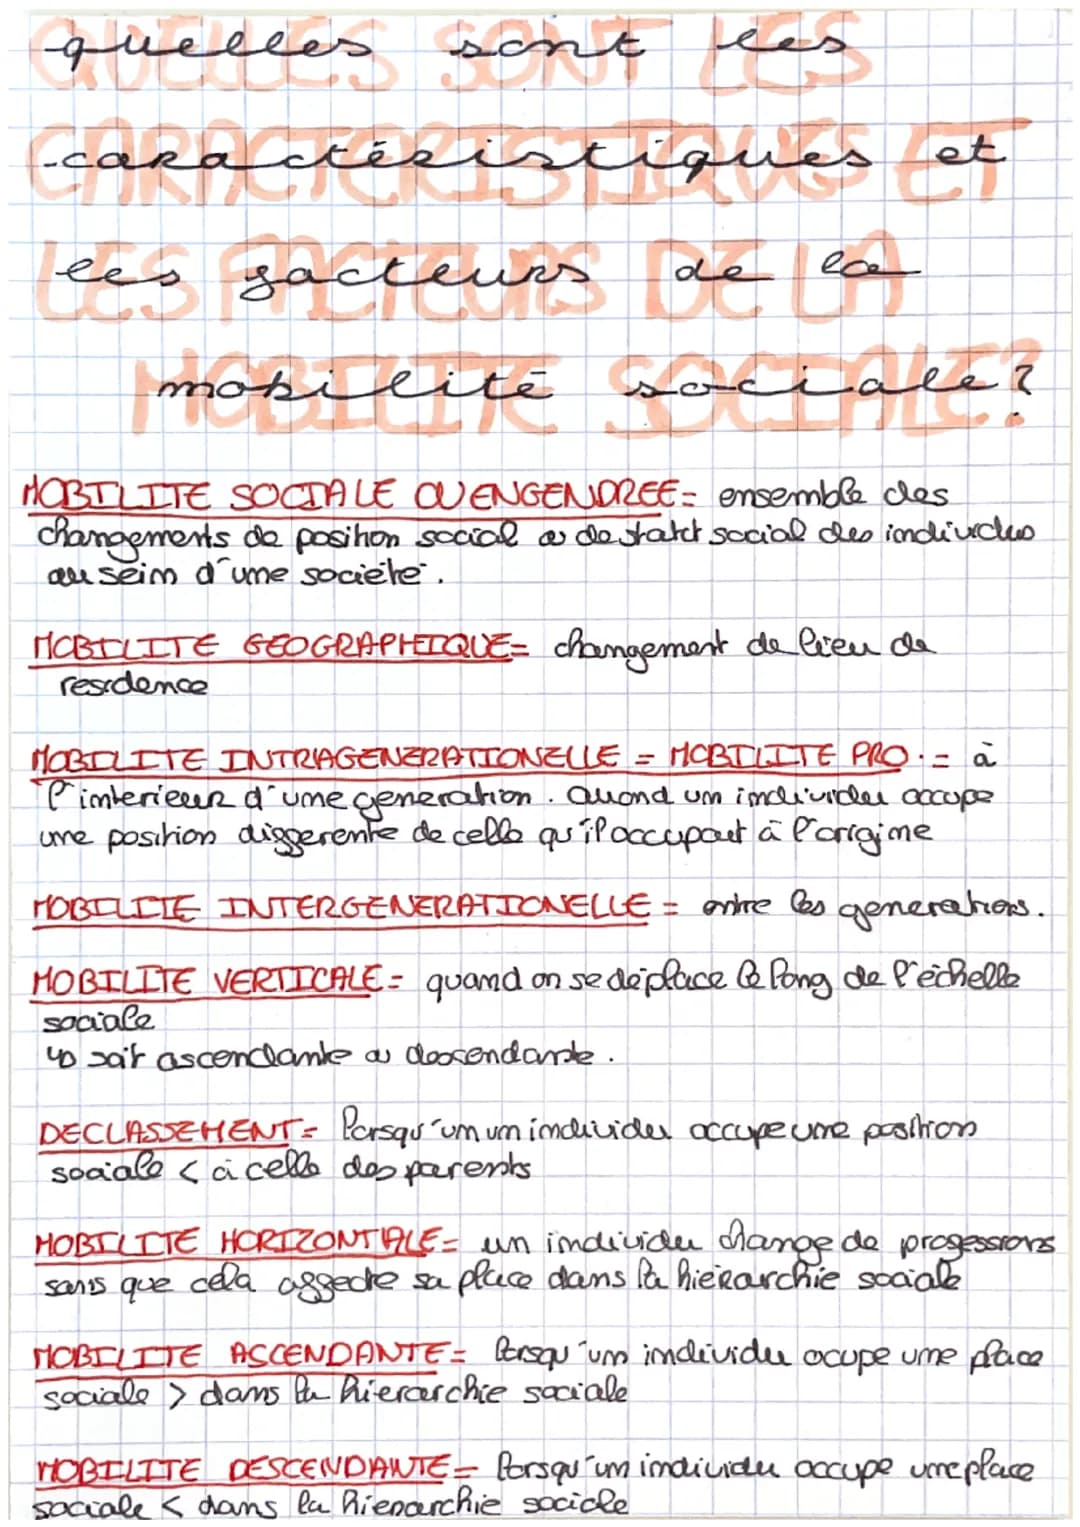 quelles sont les
QUELLES SONT LES
caractéristiques et
CARACTERISTIQUES ET
les facteurs de la
LES FACTEURS DE LA
mobilité sociale ?
MOBILITE SOCIALE ?
MOBILITE SOCIALE OU ENGENDREE = ensemble des
changements de position social ou de statut social des individus
au sein d'une société.
MOBILITE GEOGRAPHIQUE = changement de lieu de
residence
MOBILITE INTRAGENERATIONELLE = MOBILITE PRO. = à
l'interieur d'une generation. Quand un individu occupe
une position differente de celle qu'il occupait à l'origine
MOBILITE INTERGENERATIONELLE = entre les generations.
MOBILITE VERTICALE = quand on se déplace le long de l'échelle
sociale
↳ soit ascendante ou descendante.
DECLASSEMENT = lorsqu'un un individu occupe une position
sociale < à celle des parents
MOBILITE HORIZONTALE = un individu change de professions
sans que cela affecte sa place dans la hiérarchie sociale
MOBILITE ASCENDANTE = lorsqu'un individu ocupe une place
sociale > dans la hierarchie sociale
MOBILITE DESCENDANTE = lorsqu'un individu occupe une place
sociale < dans la hierarchie sociale